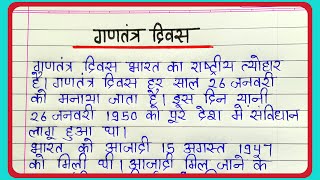 गणतंत्र दिवस
गणतंत्र दिवस भारत का राष्ट्रीय त्योहार
है। गणतंत्र दिवस हर साल 26 जनवरी
को मनाया जाता है। इस दिन यानी
26 जनवरी 1950 को पूरे देश मे संविधान
लागू हुआ था।
भारत को आजादी 15 अगस्त 1947
को मिली थी। आजादी मिल जाने के